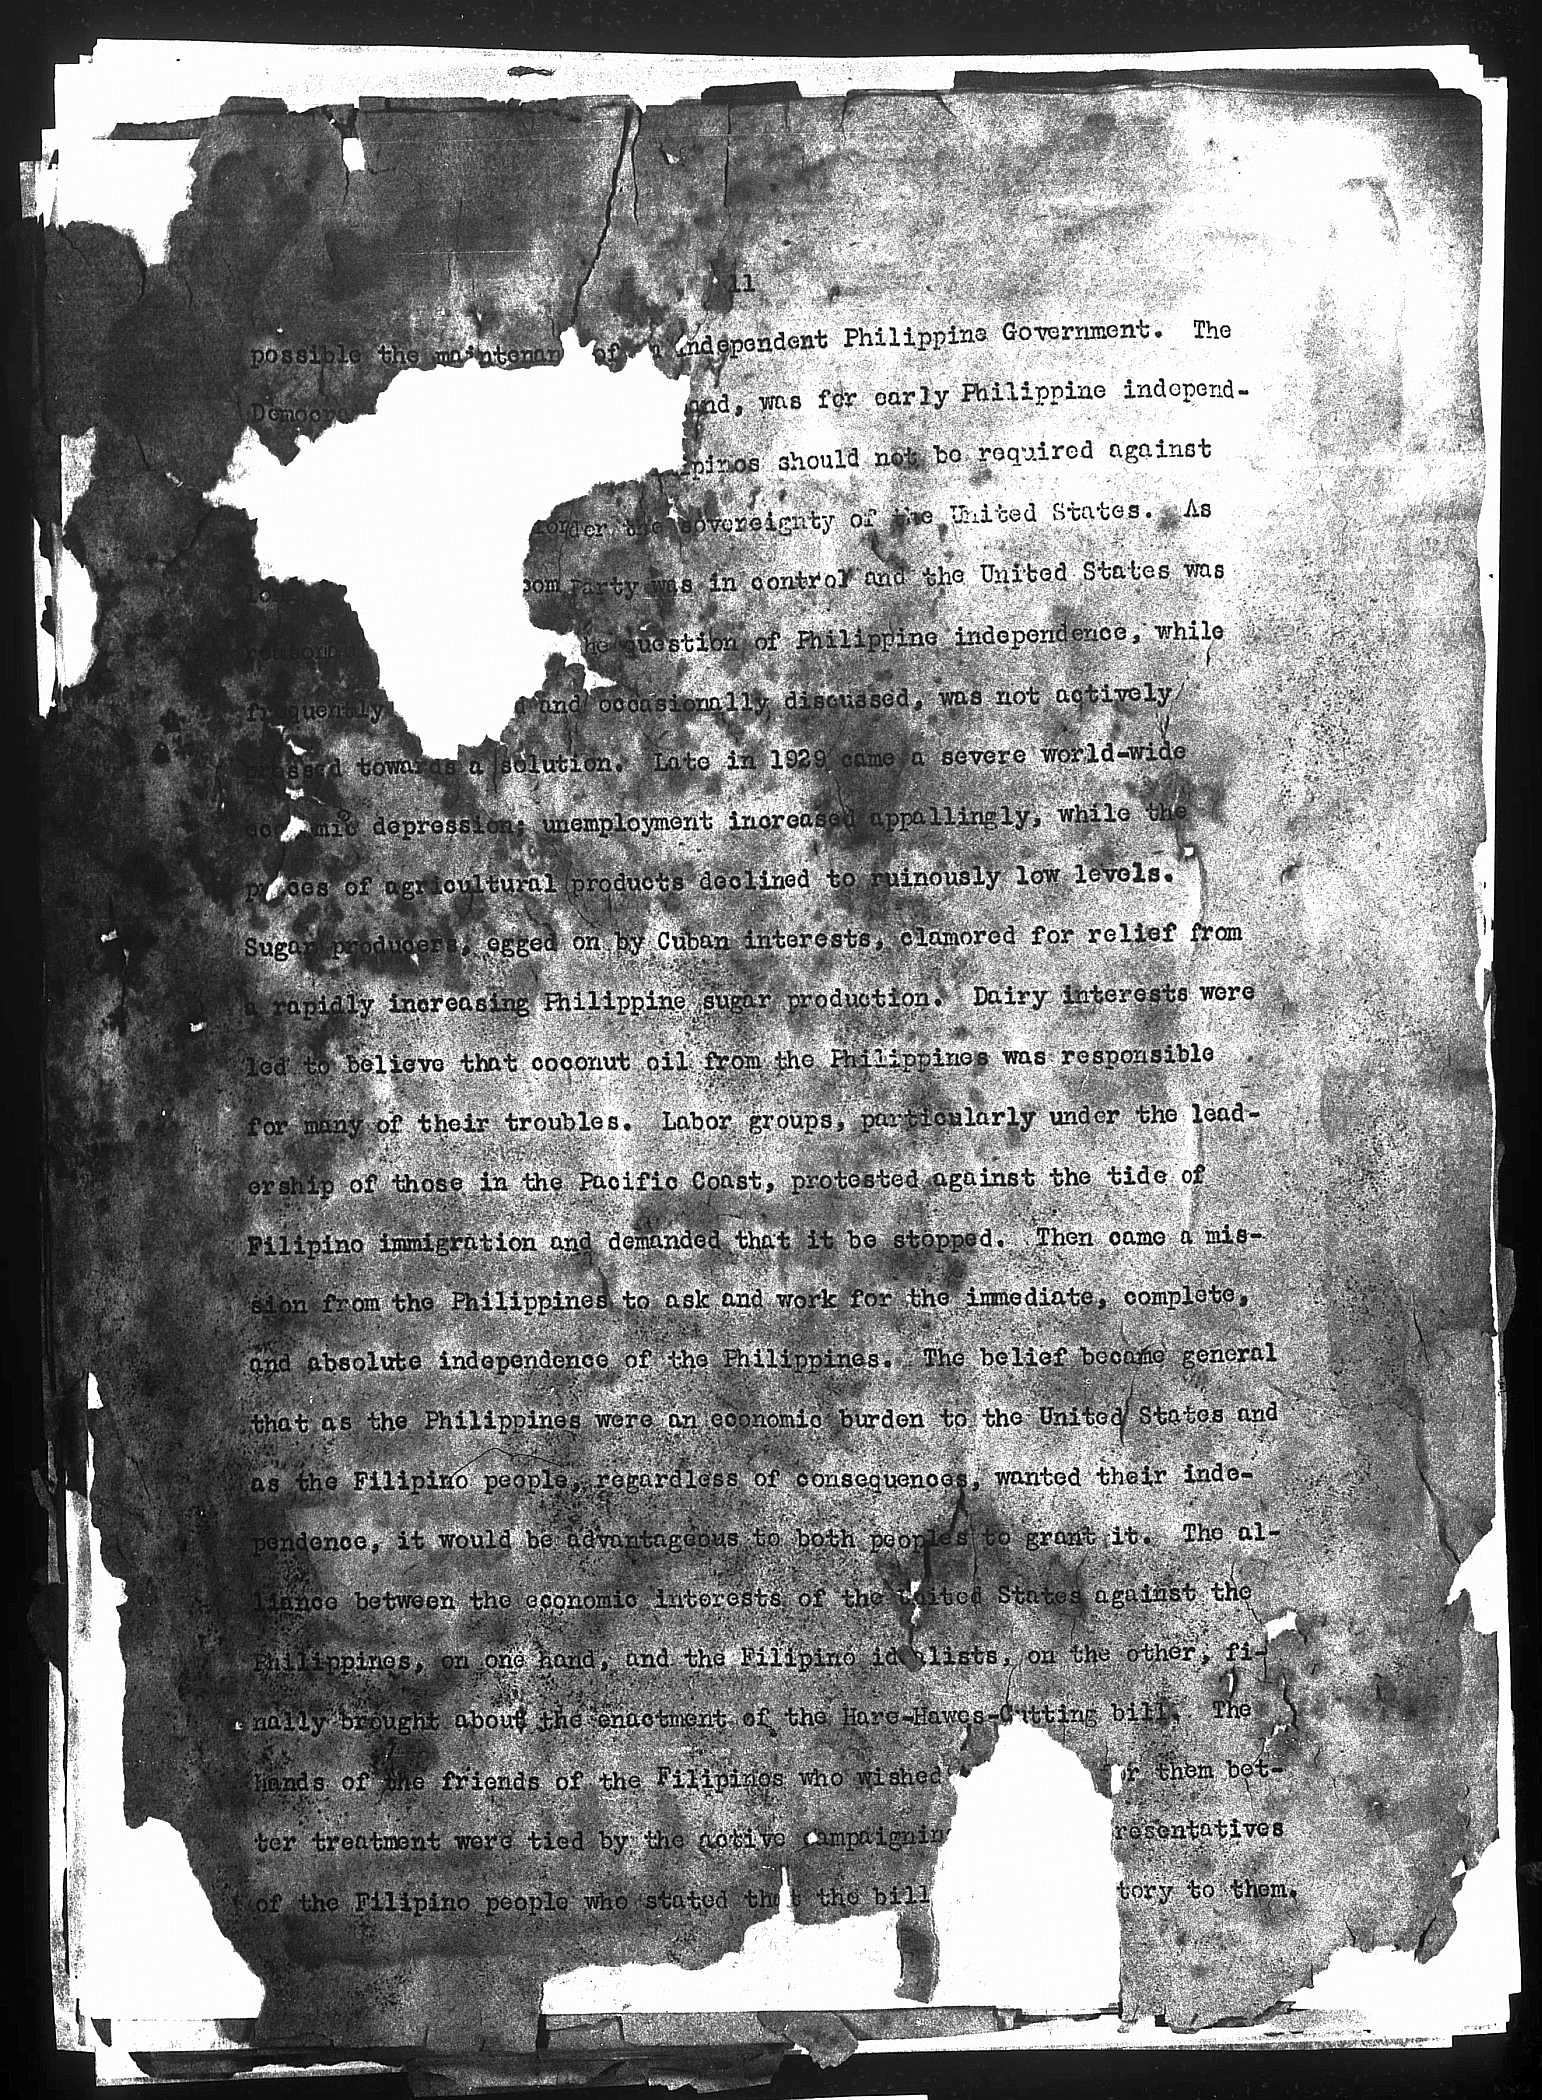 11
possible the maintenan of independent Philippine Government. The
Democra and, was for early Philippine independ-
pinos should not be required against
order the sovereignty of the United States. As
Party was in control and the United States was
he question of Philippine independence, while
frequently and occasionally discussed, was not actively
pressed towards a solution. Late in 1929 came a severe world-wide
economic depression; unemployment increased appallingly, while the
prices of agricultural products declined to ruinously low levels.
Sugar producers, egged on by Cuban interests, clamored for relief from
a rapidly increasing Philippine sugar production. Dairy interests were
led to believe that coconut oil from the Philippines was responsible
for many of their troubles. Labor groups, particularly under the lead-
ership of those in the Pacific Coast, protested against the tide of
Filipino immigration and demanded that it be stopped. Then came a mis-
sion from the Philippines to ask and work for the immediate, complete,
and absolute independence of the Philippines. The belief became general
that as the Philippines were an economic burden to the United States and
as the Filipino people, regardless of consequences, wanted their inde-
pendence, it would be advantageous to both peoples to grant it. The al-
liance between the economic interests of the United States against the
Philippines, on one hand, and the Filipino idealists, on the other, fi-
nally brought about the enactment of the Hare-Hawes-Cutting bill. The
hands of the friends of the Filipinos who wished r them bet-
ter treatment were tied by the active campaignin resentatives
of the Filipino people who stated that the bill tory to them.